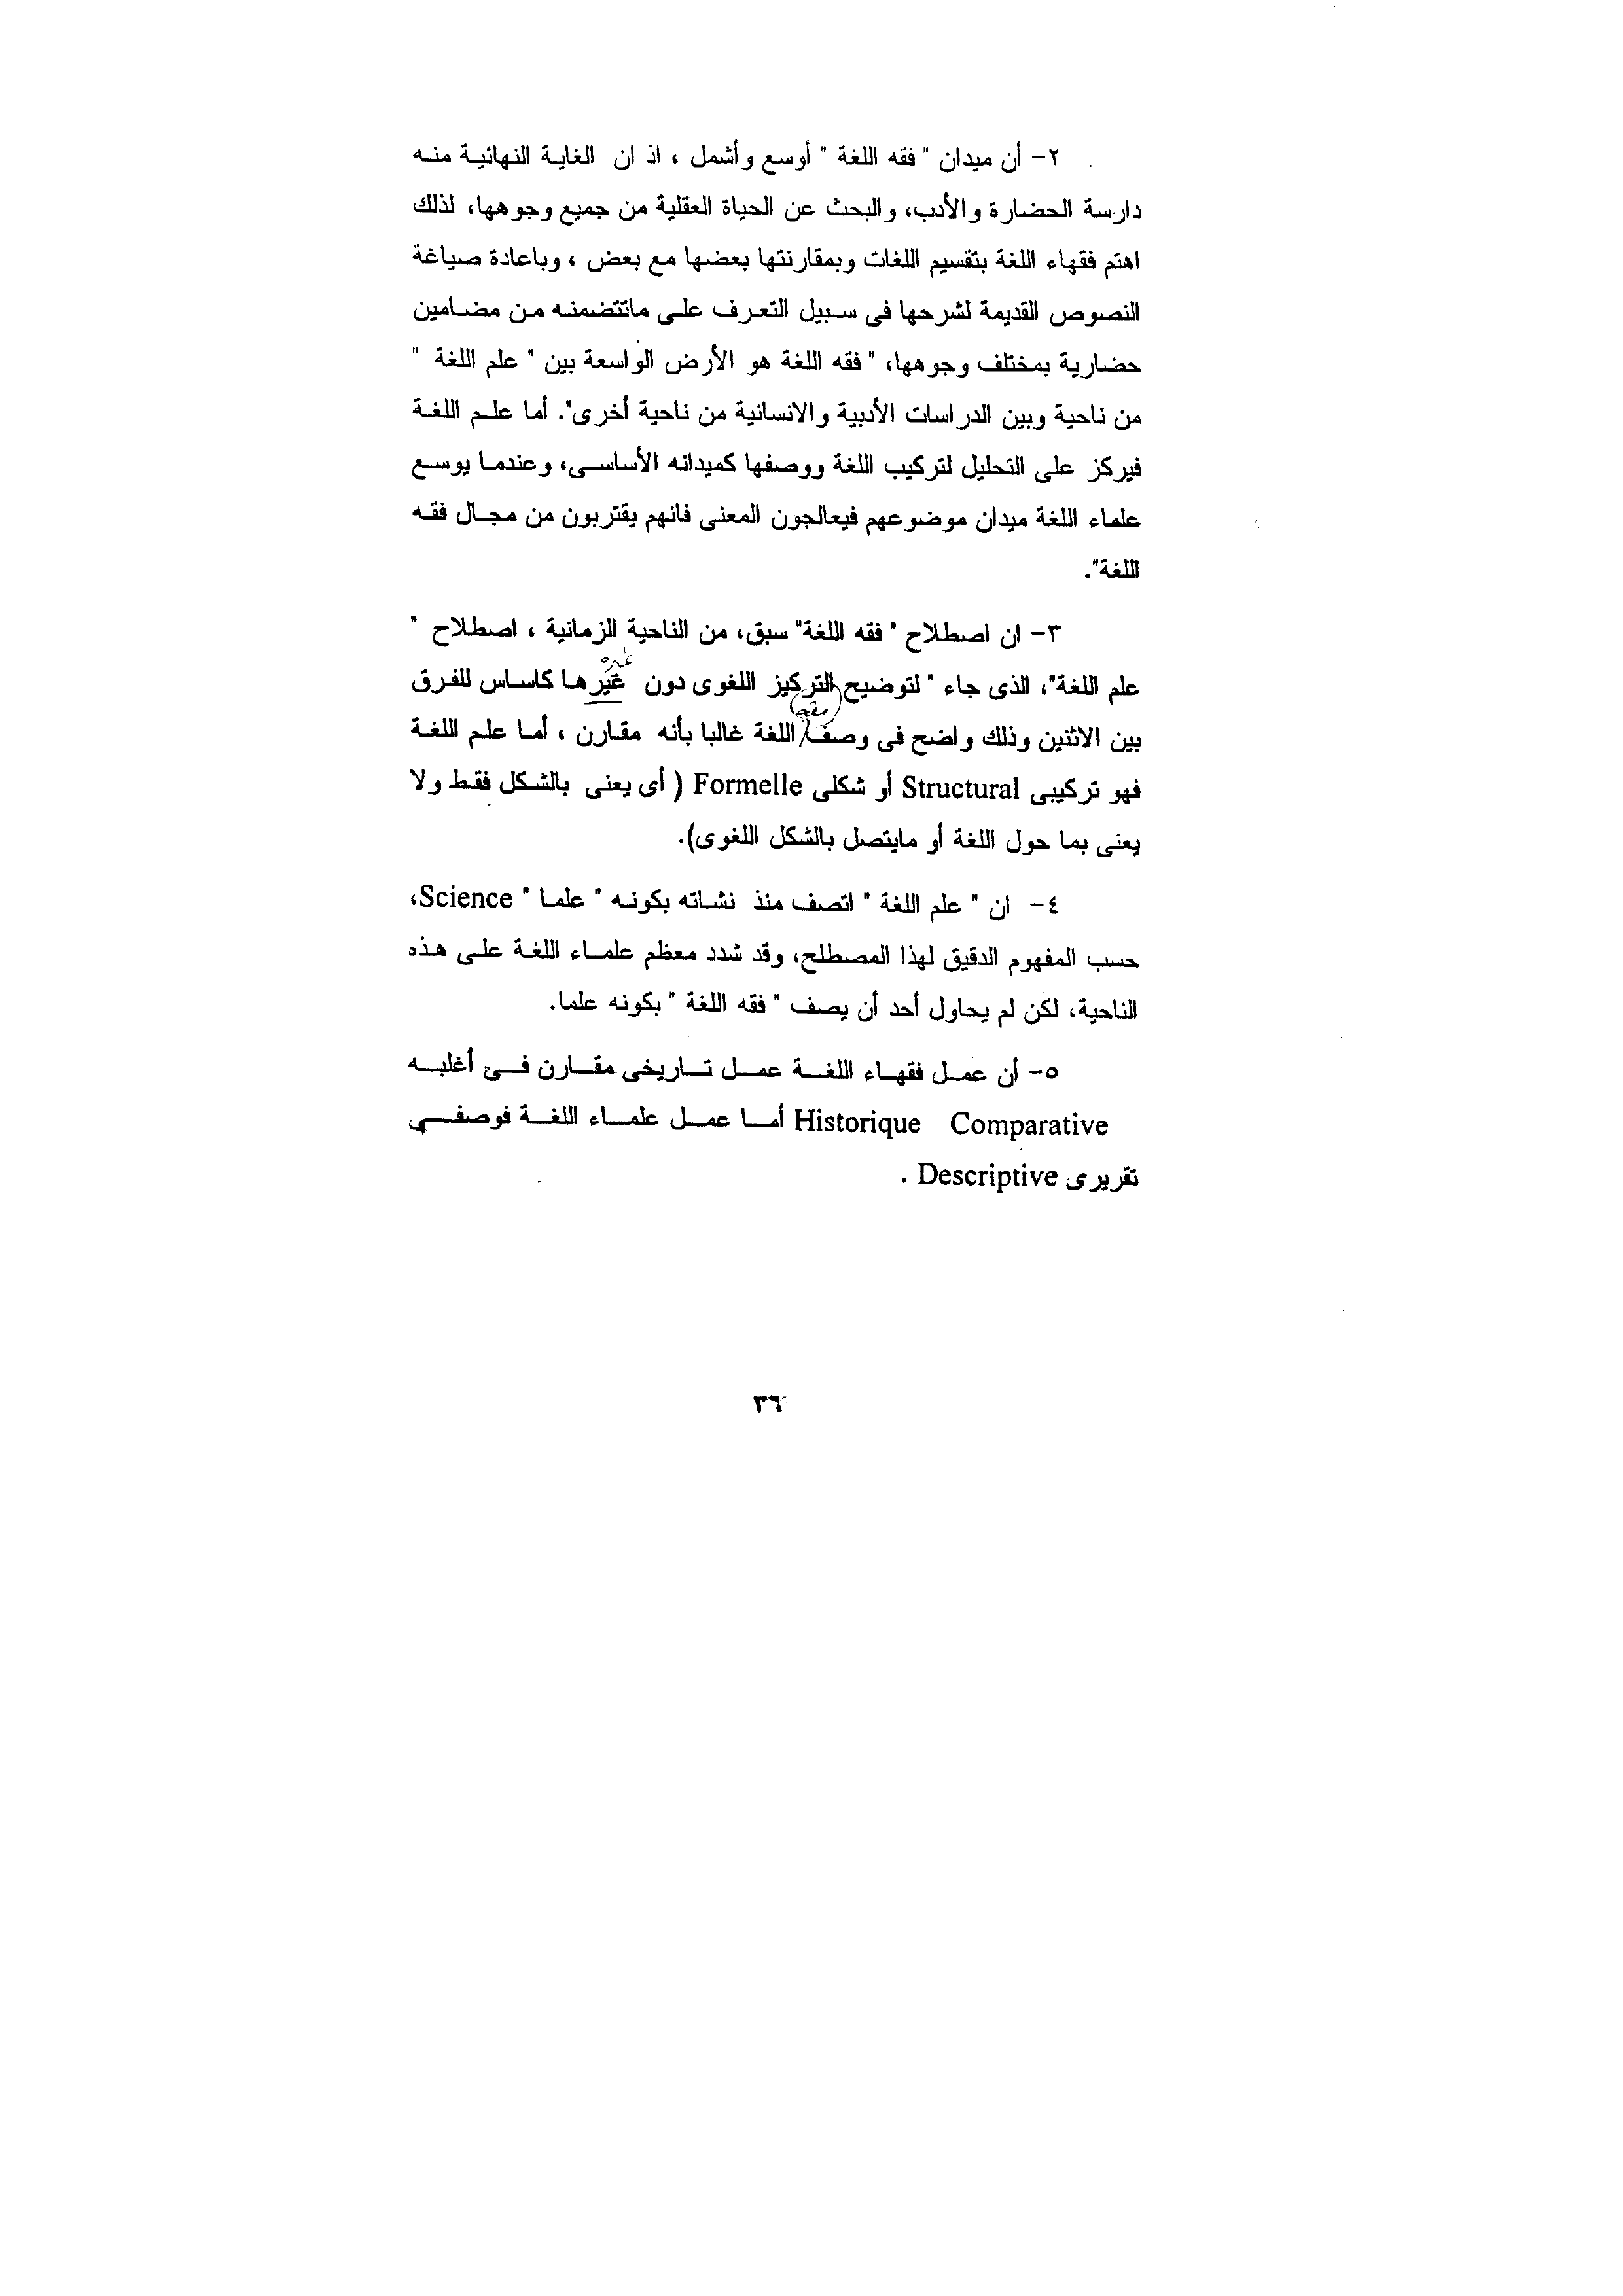 ٢- أن ميدان " فقه اللغة " أوسع وأشمل ، اذ ان الغاية النهائية منه
دارسة الحضارة والأدب، والبحث عن الحياة العقلية من جميع وجوهها، لذلك
اهتم فقهاء اللغة بتقسيم اللغات وبمقارنتها بعضها مع بعض ، وباعادة صياغة
النصوص القديمة لشرحها فى سبيل التعرف على ماتتضمنه من مضامين
حضارية بمختلف وجوهها، " فقه اللغة هو الأرض الواسعة بين " علم اللغة "
من ناحية وبين الدراسات الأدبية والانسانية من ناحية أخرى". أما علم اللغة
فيركز على التحليل لتركيب اللغة ووصفها كميدانه الأساسى، وعندما يوسع
علماء اللغة ميدان موضوعهم فيعالجون المعنى فانهم يقتربون من مجال فقه
اللغة".
٣- ان اصطلاح " فقه اللغة" سبق، من الناحية الزمانية ، اصطلاح "
غيره
علم اللغة"، الذى جاء " لتوضيح التركيز اللغوى دون غيرها كاساس للفرق
فقه
بين الاثنين وذلك واضح فى وصف اللغة غالبا بأنه مقارن ، أما علم اللغة
فهو تركيبى Structural أو شكلى Formelle ( أى يعنى بالشكل فقط ولا
يعنى بما حول اللغة أو مايتصل بالشكل اللغوى).
٤- ان " علم اللغة " اتصف منذ نشاته بكونه " علما " Science،
حسب المفهوم الدقيق لهذا المصطلح، وقد شدد معظم علماء اللغة على هذه
الناحية، لكن لم يحاول أحد أن يصف " فقه اللغة " بكونه علما.
٥- أن عمل فقهاء اللغة عمل تاريخى مقارن فى أغلبه
Historique Comparative أما عمل علماء اللغة فوصفي
تقريرى Descriptive .
٣٦